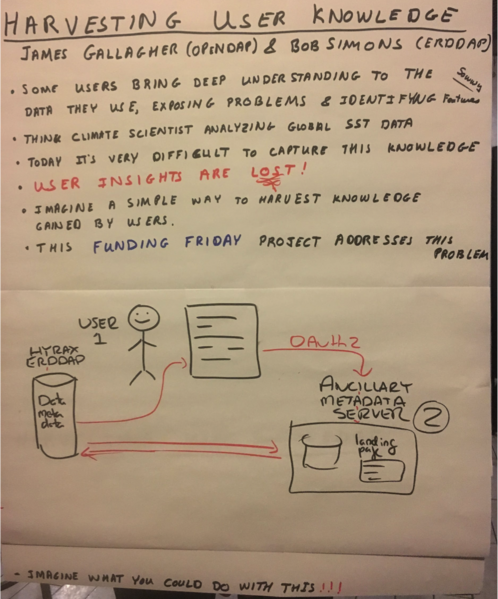 HARVESTING USER KNOWLEDGE
JAMES GALLAGHER (OPENDAP) & BOB SIMONS (ERDDAP)
• SOME USERS BRING DEEP UNDERSTANDING TO THE
DATA THEY USE, EXPOSING PROBLEMS & IDENTIFYNG Features
• THINK CLIMATE SCIENTIST ANALYZING GLOBAL SST DATA
• TODAY IT'S VERY DIFFICULT TO CAPTURE THIS KNOWLEDGE
• USER INSIGHTS ARE LOST!
• IMAGINE A SIMPLE WAY TO HARVEST KNOWLEDGE
GAINED BY USERS.
• THIS FUNDING FRIDAY PROJECT ADDRESSES THIS
PROBLEM
USER
1
OAuth2
HYRAX
ERDDAP
Data
meta
data
ANCILLARY
METADATA
SERVER
2
landing
page
- IMAGINE WHAT YOU COULD DO WITH THIS!!!